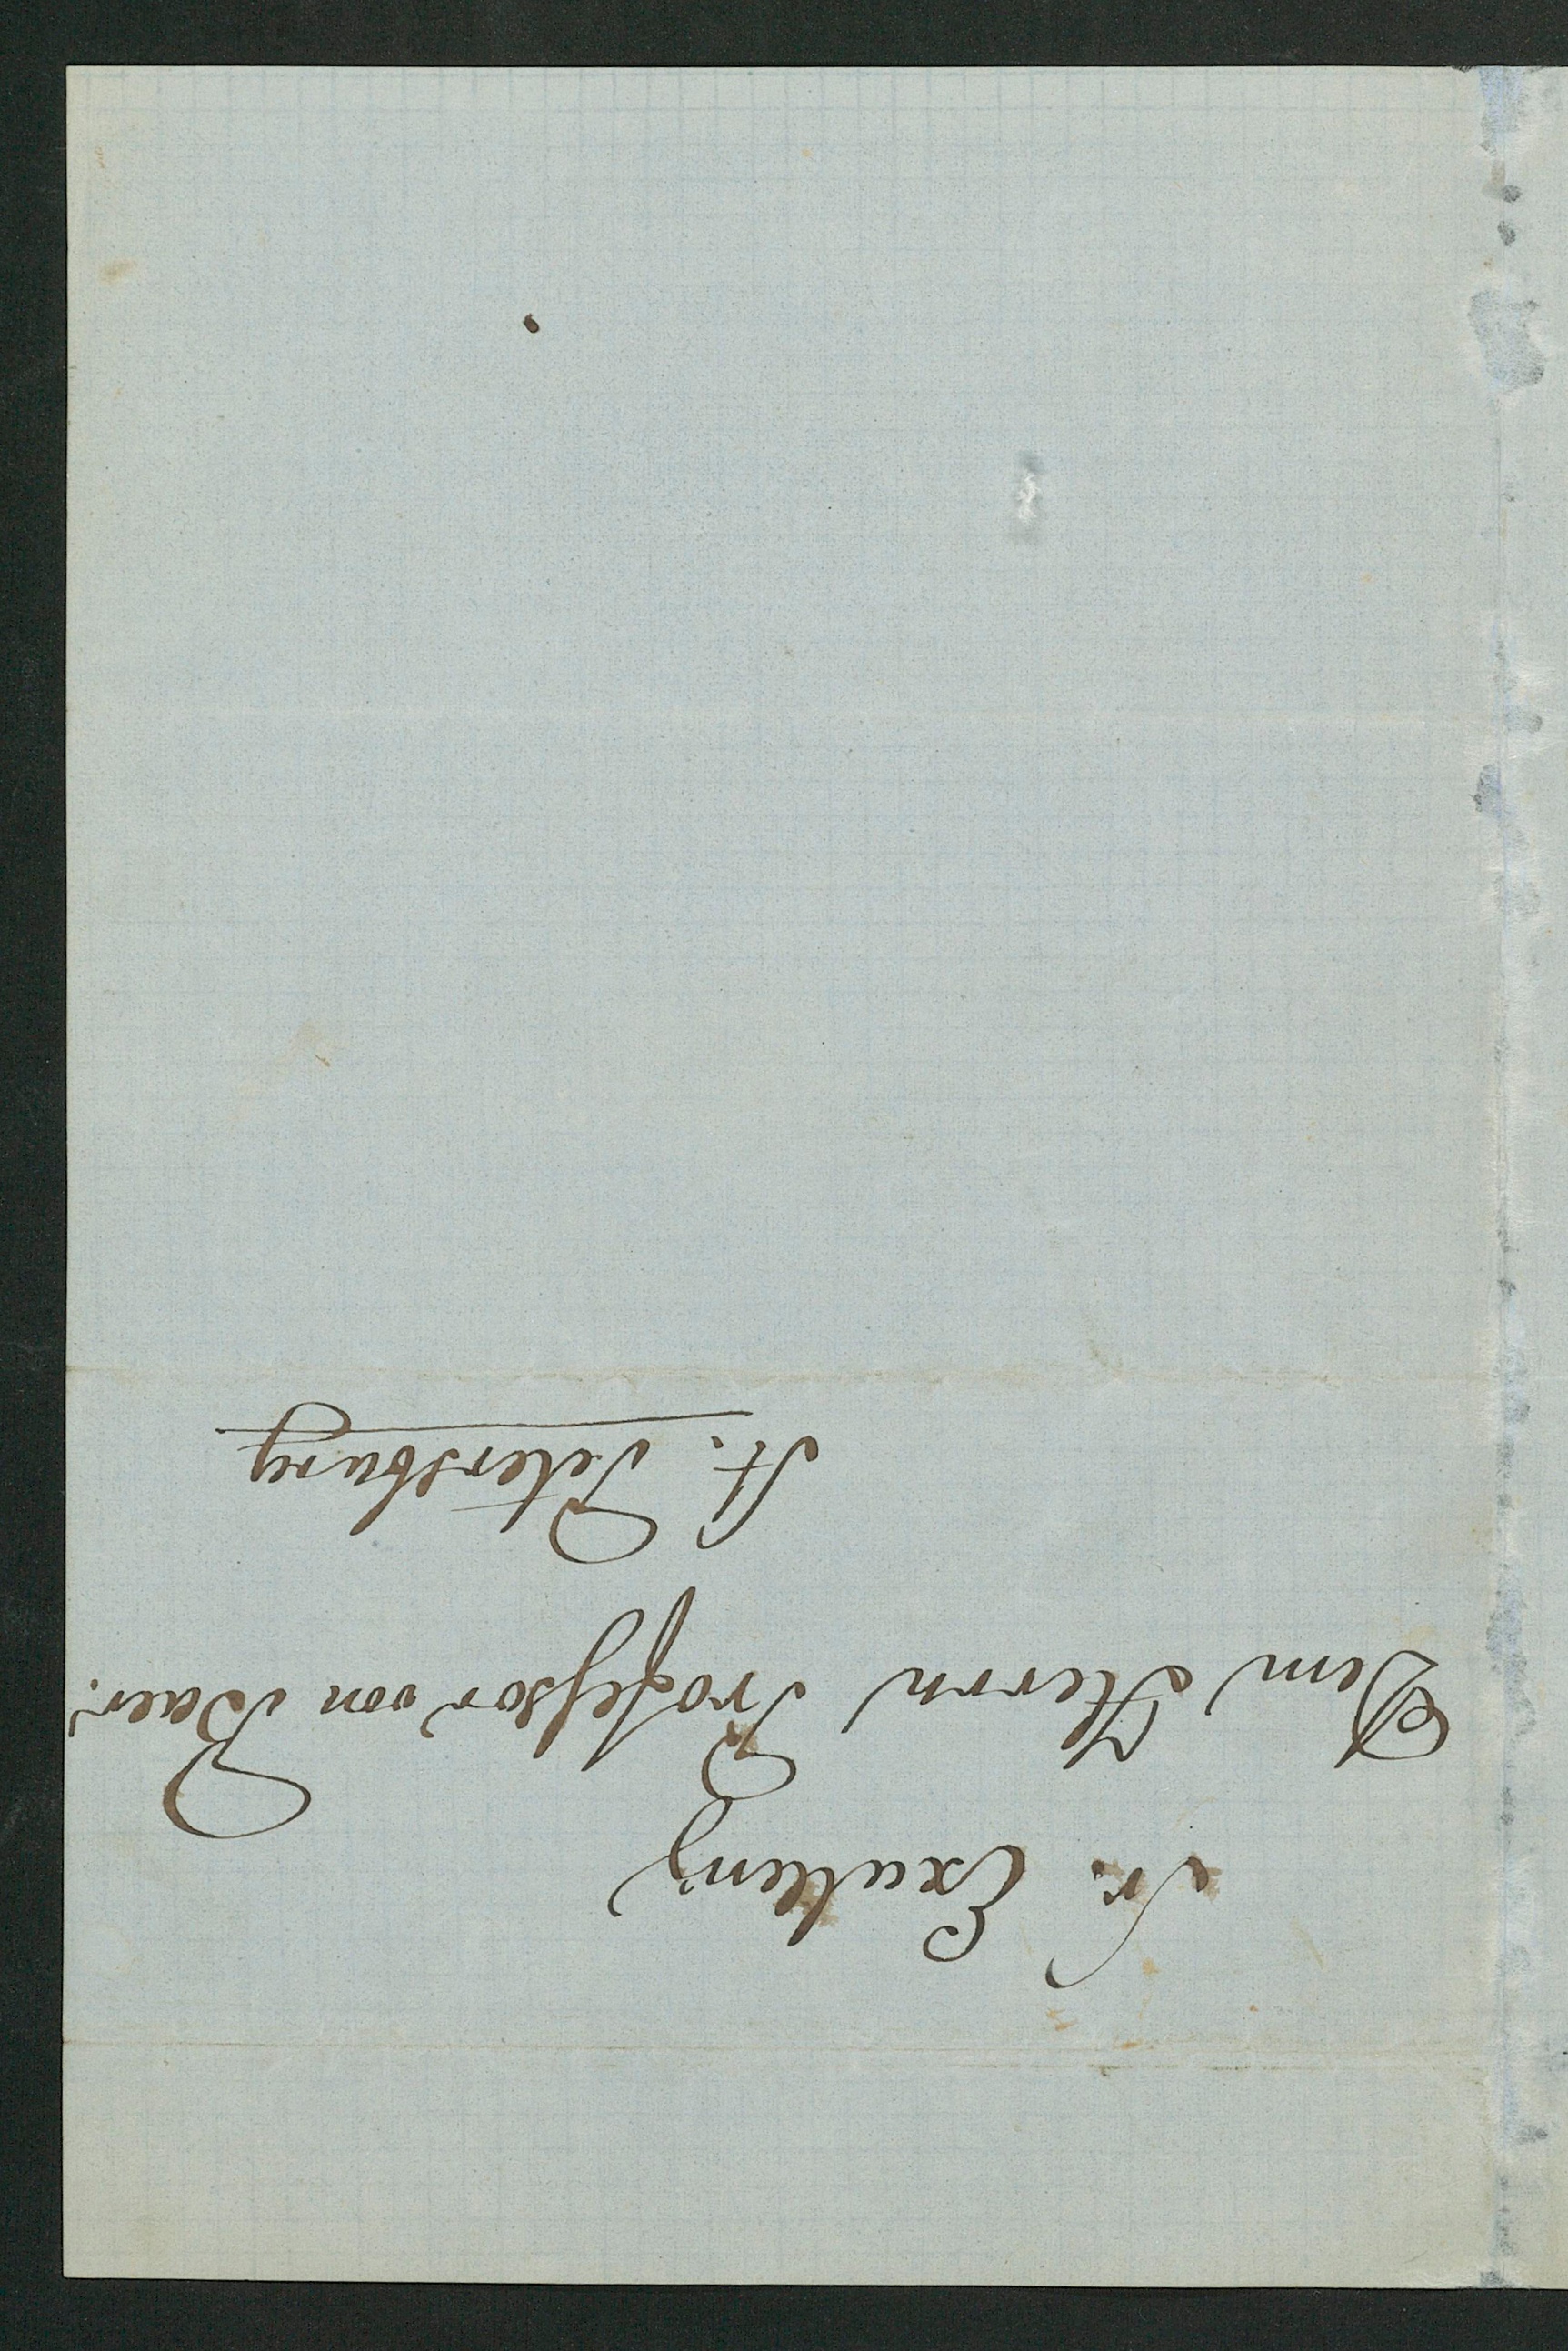 Sr. Excellenz
Dem Herrn Professor von Baer.
St. Petersburg